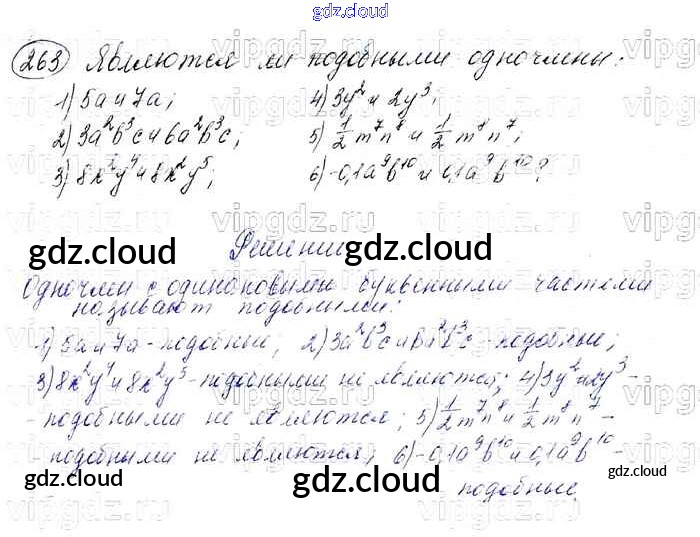 gdz.cloud
263 Являются ли подобными одночлены:
1) 5a и 7a; 4) 3y² и 2y³;
2) 3a²b³c и 6a²b³c; 5) ½m⁷n⁸ и ½m⁸n⁷;
3) 8x²y⁴ и 8x²y⁵; 6) -0,1a⁹b¹⁰ и 0,1a⁹b¹⁰?
gdz.cloud Решение gdz.cloud
Одночлен с одинаковыми буквенными частями
называют подобными:
1) 5a и 7a - подобные; 2) 3a²b³c и 6a²b³c - подобные;
3) 8x²y⁴ и 8x²y⁵ - подобными не являются; 4) 3y² и 2y³ -
- подобными не являются; 5) ½m⁷n⁸ и ½m⁸n⁷ -
- подобными не являются; 6) -0,1a⁹b¹⁰ и 0,1a⁹b¹⁰ -
gdz.cloud gdz.cloud gdz.cloud
подобные.